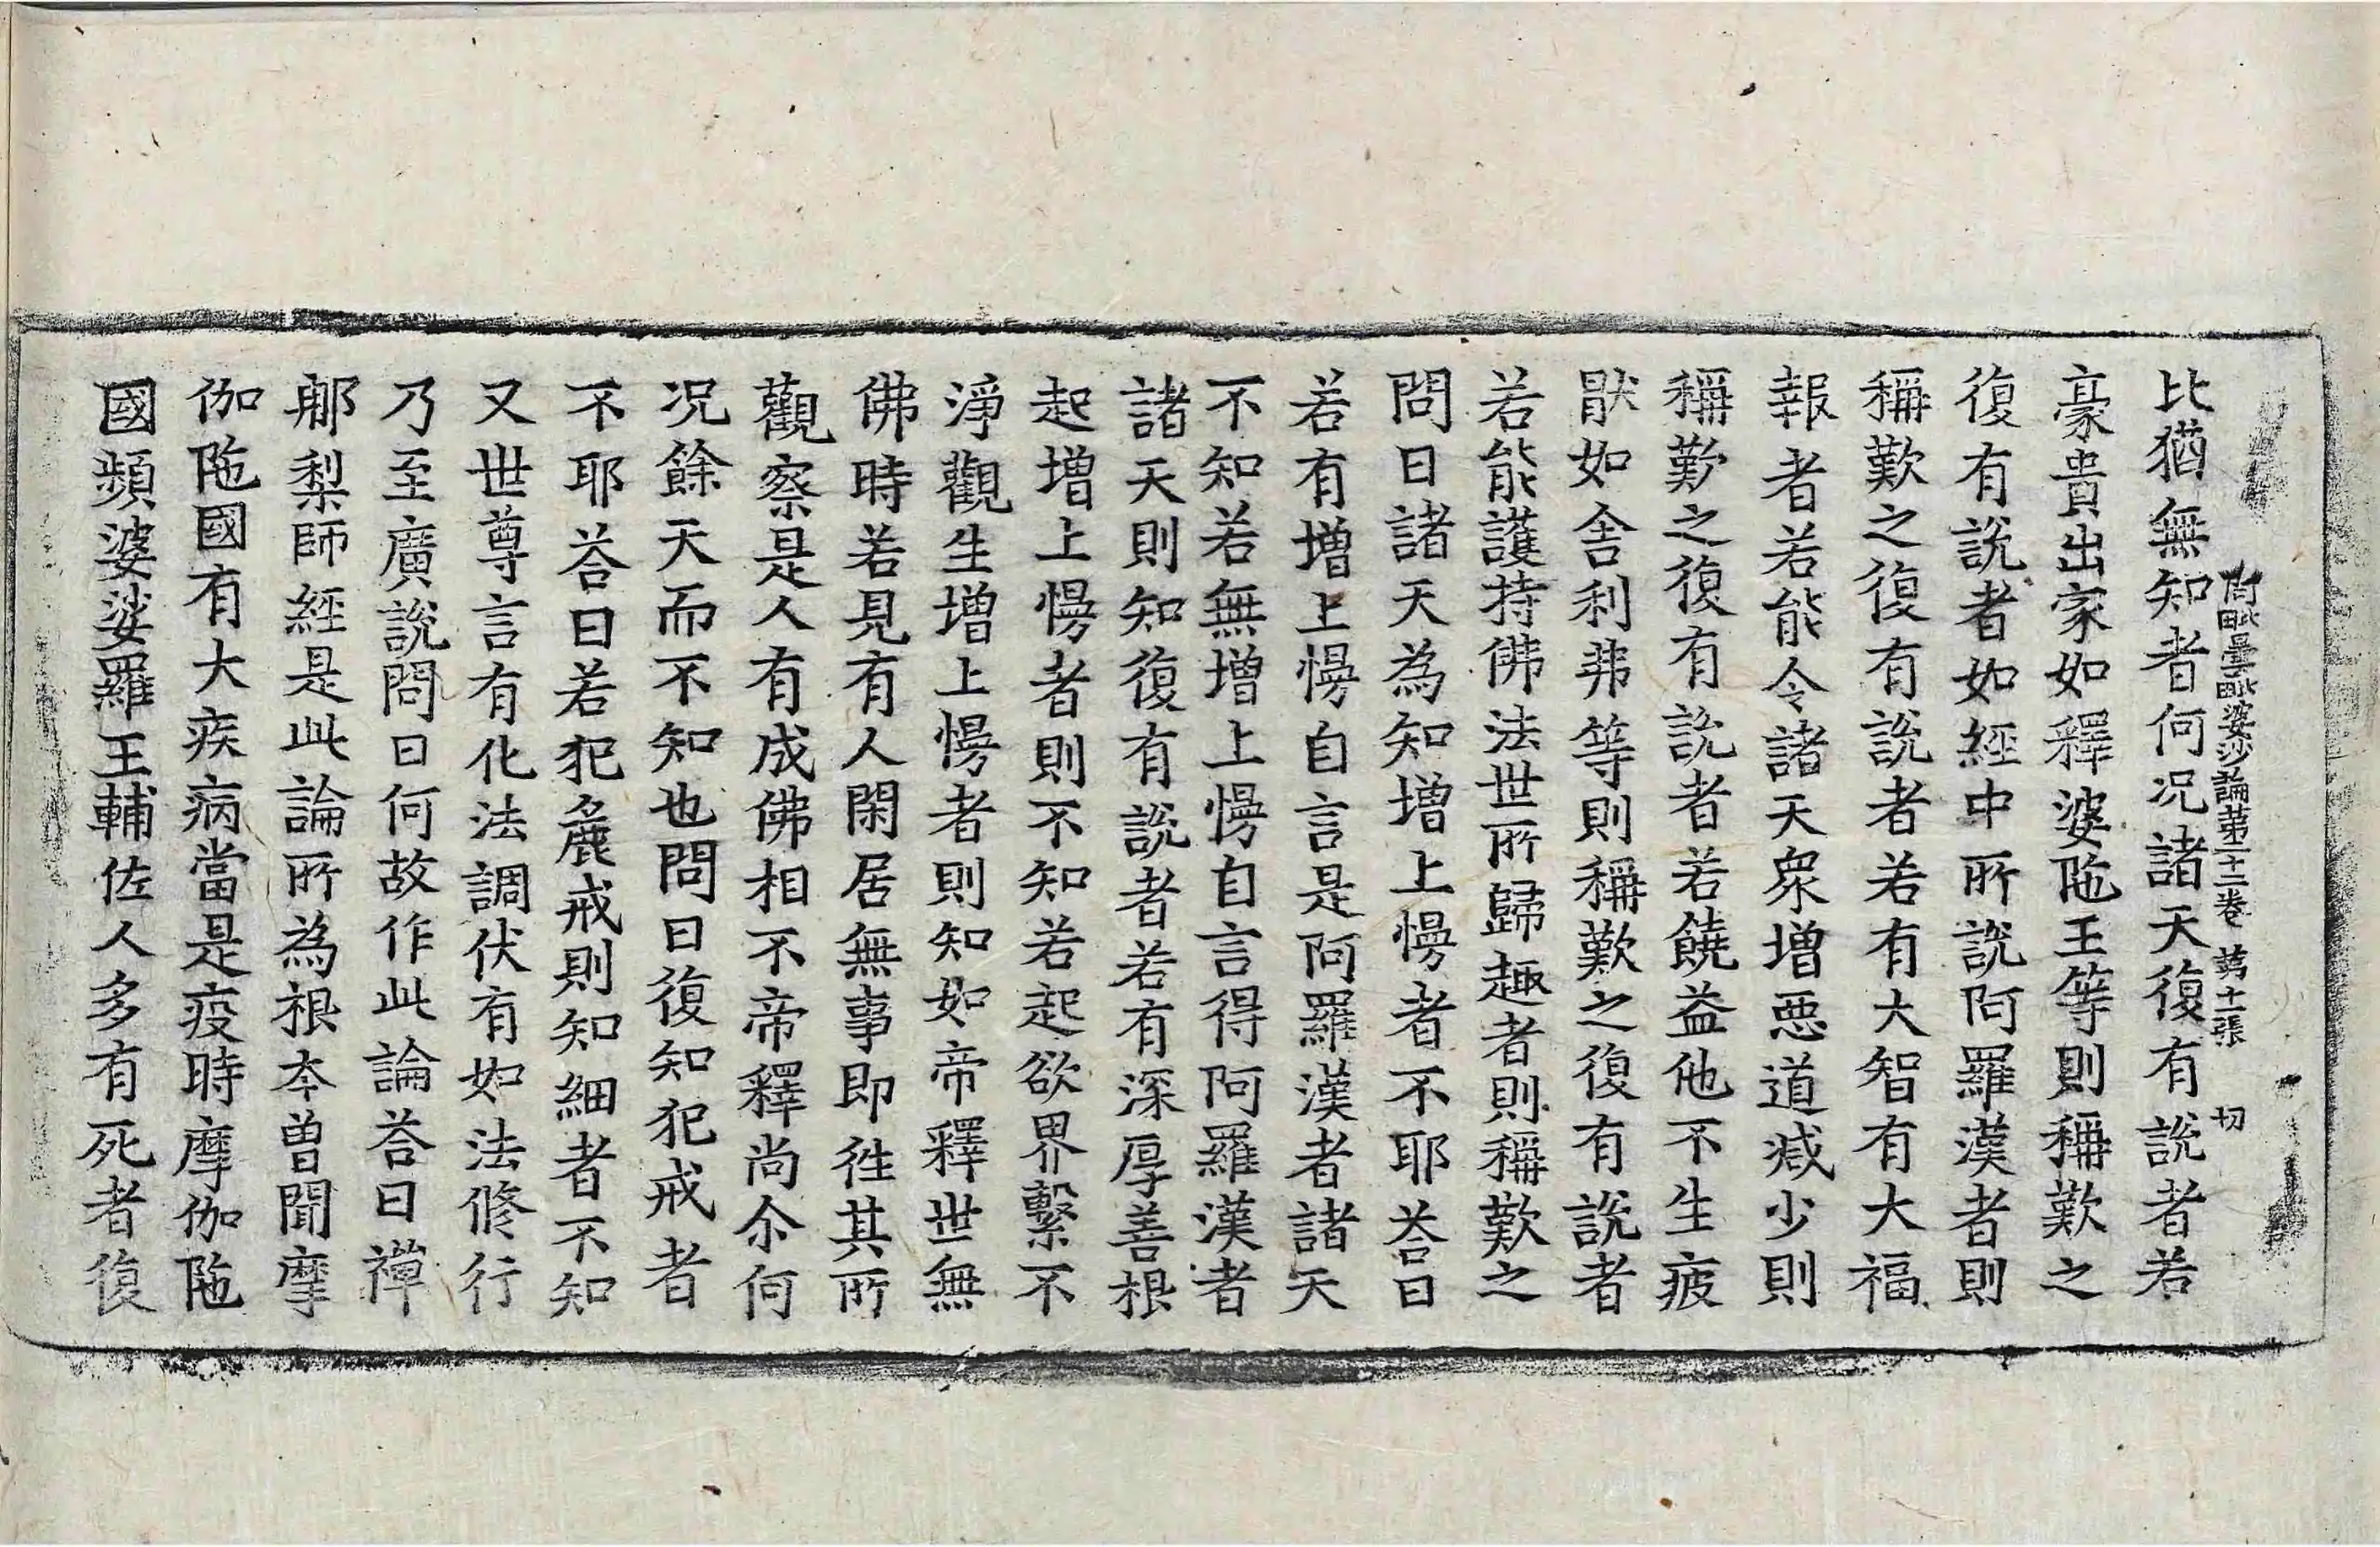 阿毗曇毗婆沙論第二十二卷 第十一張 切
比猶無知者何況諸天復有說者若
豪貴出家如釋婆陁王等則稱歎之
復有說者如經中所說阿羅漢者則
稱歎之復有說者若有大智有大福
報者若能令諸天衆增惡道減少則
稱歎之復有說者若饒益他不生疲
猒如舍利弗等則稱歎之復有說者
若能護持佛法世所歸趣者則稱歎之
問曰諸天為知增上慢者不耶荅曰
若有增上慢自言是阿羅漢者諸天
不知若無增上慢自言得阿羅漢者
諸天則知復有說者若有深厚善根
起增上慢者則不知若起欲界繫不
淨觀生增上慢者則知如帝釋世無
佛時若見有人閑居無事即往其所
觀察是人有成佛相不帝釋尚尒何
況餘天而不知也問曰復知犯戒者
不耶荅曰若犯麁戒則知細者不知
又世尊言有化法調伏有如法修行
乃至廣說問曰何故作此論荅曰禪
那梨師經是此論所為根本曾聞摩
伽陁國有大疾病當是疫時摩伽陁
國頻婆娑羅王輔佐人多有死者復